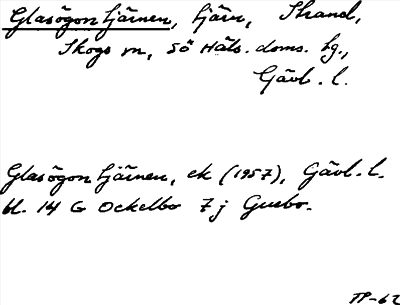 Glasögontjärnen, tjärn, Strand,
Skogs sn, Sö Häls. doms. tg.,
Gävl. l.
Glasögontjärnen, ek (1957), Gävl. l.
bl. 14 G Ockelbo 7j Gusbo.
TP-62